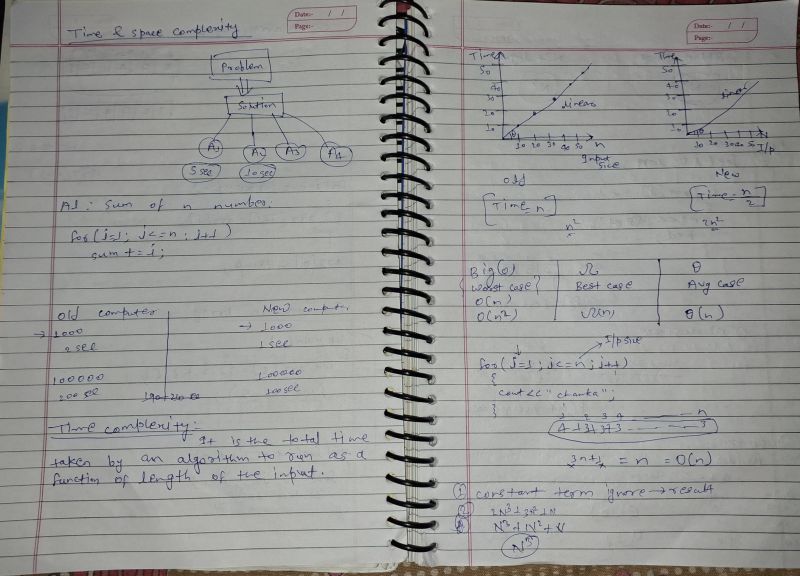 Date:- / /
Page:-
Time & space complexity
Problem
Solution
A1 A2 A3 A4
5 sec 10 sec
A1: Sum of n number.
for(i=1; i<=n; i++)
sum += i;
Old computer New computer
→ 1000 → 1000
2 sec 1 sec
100000 100000
200 sec 100 sec
Time complexity:-
It is the total time
taken by an algorithm to run as a
function of length of the input.
Date:- / /
Page:-
Time
50
40
30
20
10
linear
10 20 30 40 50 n
Input
size
Time
50
40
30
20
10
linear
10 20 30 40 50
I/p
Old New
[Time = n] [Time = n/2]
n² 2n²
Big(O) Ω θ
{Worst case} Best case Avg case
O(n)
O(n²) Ω(n) θ(n)
I/p size
for(i=1; i<=n; i++)
{
cout<<"chanka";
}
1 2 3 4 ------ n
4+3+3+3 ------ 3
3n+1 = n = O(n)
① constant term ignore → result
② 2N³+3N²+N
③ N³+N²+N
N³